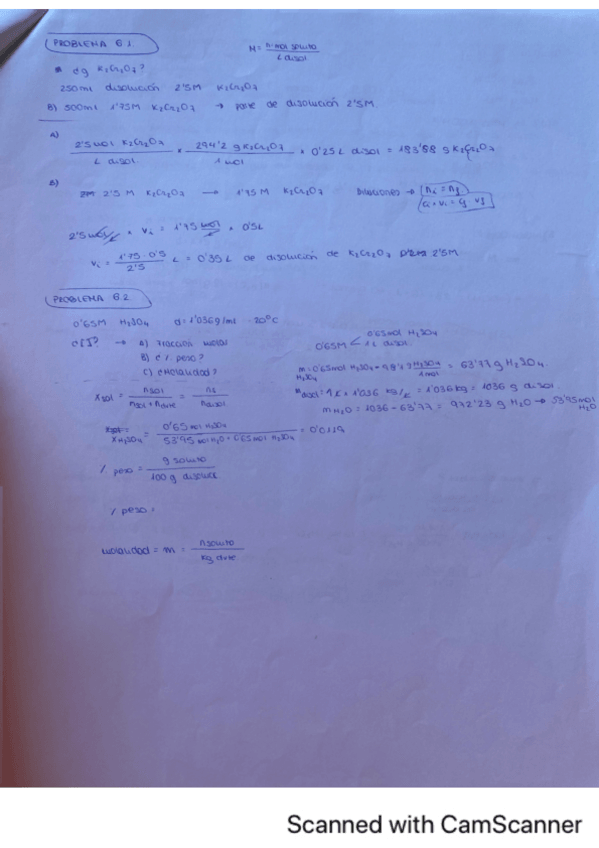 PROBLEMA 6.1
M = nºmol soluto / L disol
¿g K2Cr2O7?
250ml disolución 2'5M K2Cr2O7
B) 500ml 1'75M K2Cr2O7 → parte de disolución 2'5M
A)
2'5 mol K2Cr2O7 / L disol. × 294'2 g K2Cr2O7 / 1 mol × 0'25 L disol = 183'88 g K2Cr2O7
B)
2'5 M K2Cr2O7 → 1'75 M K2Cr2O7 Diluciones → ni = nf
ci · vi = cf · vf
2'5 mol/L × Vi = 1'75 mol/L × 0'5L
Vi = 1'75 · 0'5 / 2'5 L = 0'35 L de disolución de K2Cr2O7 2'5M
PROBLEMA 6.2
0'65M H2SO4 d = 1'036g/ml 20ºC
¿[]? → A) Fracción molar
B) ¿% peso?
C) ¿Molalidad?
0'65M < 0'65mol H2SO4
1L disol.
m H2SO4 = 0'65mol H2SO4 · 98'1 g H2SO4 / 1mol = 63'77 g H2SO4.
m disol = 1L × 1'036 kg/L = 1'036 kg = 1036 g disol.
m H2O = 1036 - 63'77 = 972'23 g H2O → 53'95 mol H2O
Xsol = nsol / nsol + ndvte = ns / ndisol.
XH2SO4 = 0'65 mol H2SO4 / 53'95 mol H2O + 0'65 mol H2SO4 = 0'0119
% peso = g soluto / 100 g disoluc
% peso =
Molalidad = m = nsoluto / kg dvte
Scanned with CamScanner